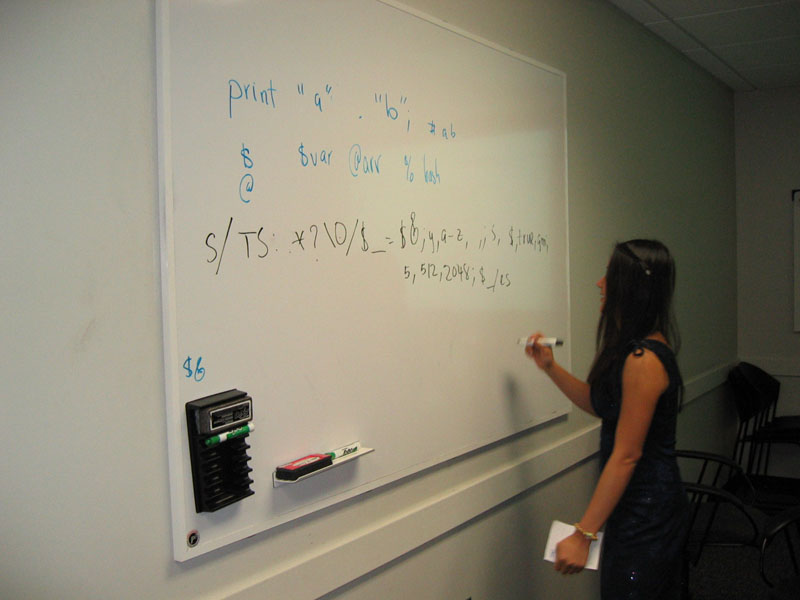 print "a" . "b"; # ab
$ $var @arr % hash
@
s/TS: *?\0/$_=$&;y,a-z, ,;s, $,true,gm,
5,512,2048;$_/es
$&